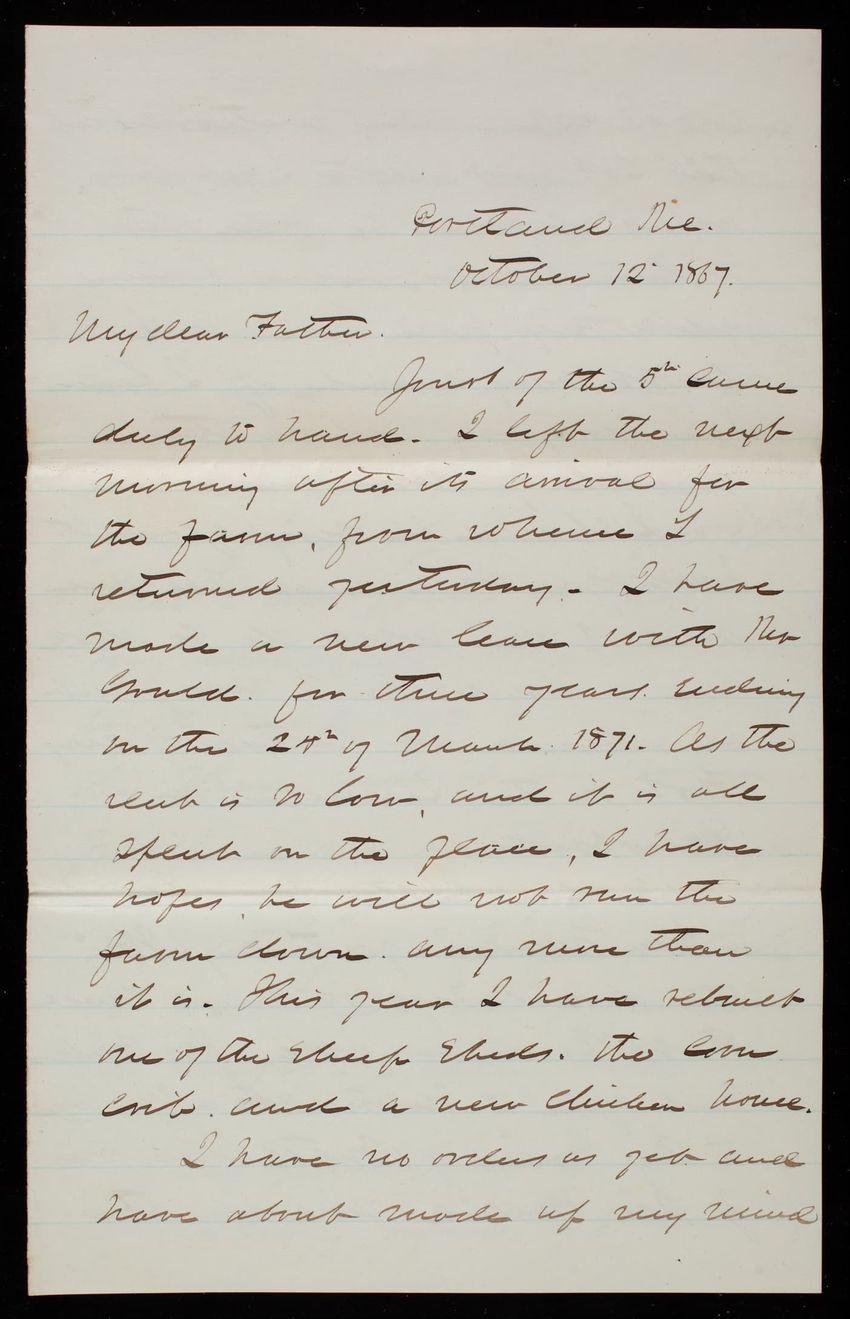 Portland Me.
October 12 1867.
My dear Father.
Yours of the 5th came
duly to hand. I left the next
morning after its arrival for
the farm, from whence I
returned yesterday. I have
made a new lease with Mr
Gould. for three years. ending
on the 24th of March. 1871. As the
rent is so low, and it is all
spent on the place, I have
hopes he will not run the
farm down. any more than
it is. This year I have rebuilt
one of the Sheep Sheds. the corn
crib. and a new chicken house.
I have no orders as yet and
have about made up my mind